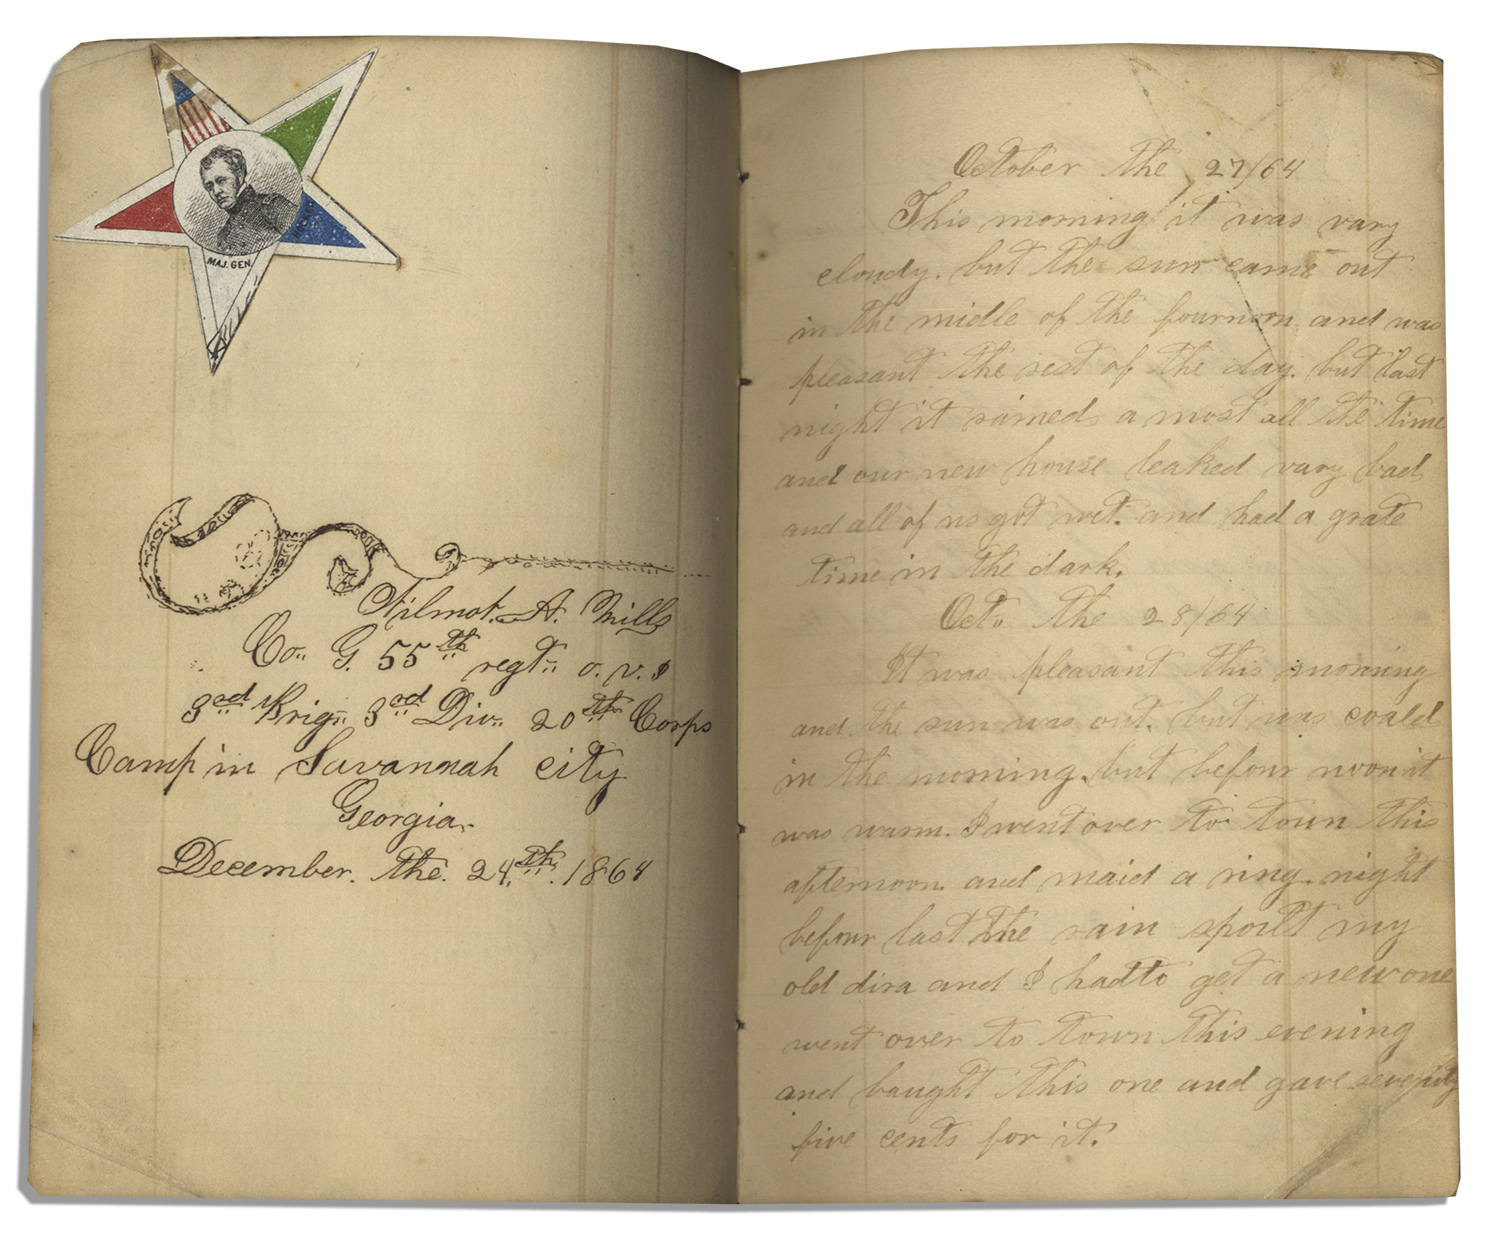 MAJ. GEN.
Wilmot. A. Mills
Co.. G. 55th regt.. o. v. I
3red Brig.. 3red Div.. 20th Corps
Camp in Savannah city
Georgia.
December. the. 24th. 1864
October the 27/64
This morning it was vary
cloudy. but the sun came out
in the midle of the fournoon and was
pleasant the rest of the day. but last
night it rained a most all the time
and our new house leaked vary bad
and all of us got wet. and had a grate
time in the dark.
Oct.. the 28/64
It was pleasant this morning
and the sun was out. but was coald
in the morning. but befour noon it
was warm. I went over to town this
afternoon and maid a ring. night
befour last the rain spoilt my
old dira and I had to get a new one
went over to town this evening
and baught this one and gave seventy
five cents for it.